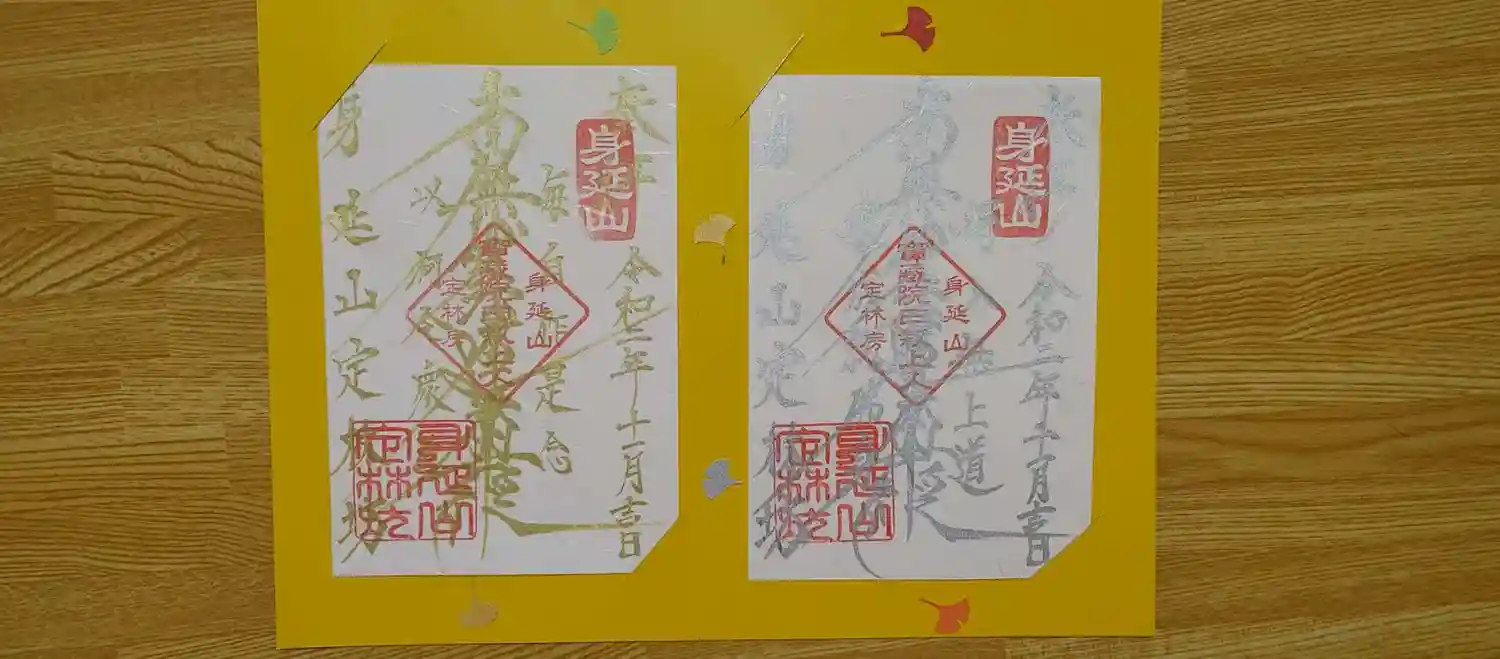 身延山
令和二年十一月吉日
毎自作是念
南無妙法蓮華経
以何令衆
身延山定林坊
身延山
定林房
身延山
定林坊
身延山
令和二年十一月吉日
上道
南無妙法蓮華経
身延山定林坊
身延山
定林房
身延山
定林坊